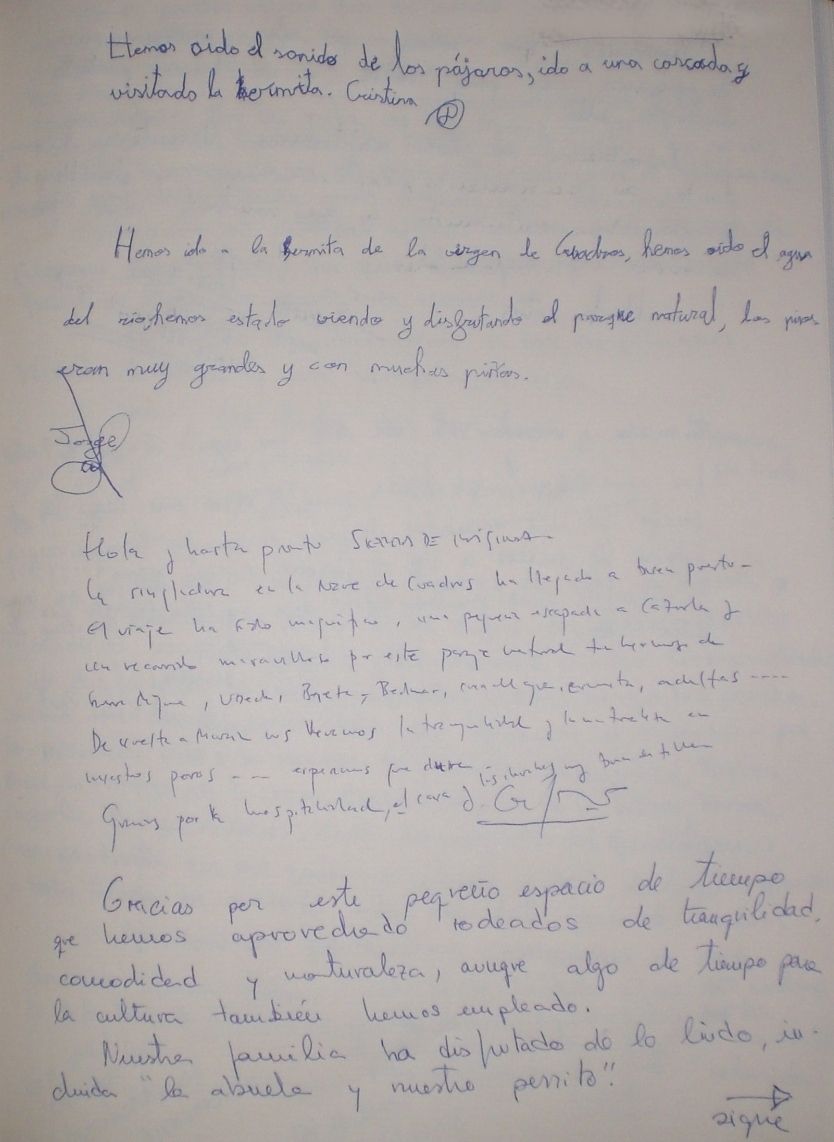 Hemos oido el sonido de los pájaros, ido a una cascada y
visitado la hermita. Cristina
Hemos ido a la hermita de la virgen de Cuadros, hemos oido el agua
del rio, hemos estado viendo y disfrutando el parque natural, los pinos
eran muy grandes y con muchas piñas.
Jorge
Hola y hasta pronto
la singladura en la Nave de Cuadros ha llegado a buen puerto
el viaje ha sido magnifico, una pequeña escapada a Cazorla y
un recorrido maravilloso por este parque natural
Ubeda, Baeza, Bedmar, ermita, adelfas ....
De vuelta a Murcia nos llevamos la tranquilidad y en
nuestros poros --- esperamos que dure
Gracias por la hospitalidad, el cava
Gracias por este pequeño espacio de tiempo
que hemos aprovechado rodeados de tranquilidad,
comodidad y naturaleza, aunque algo de tiempo para
la cultura también hemos empleado.
Nuestra familia ha disfrutado de lo lindo, in-
cluida "la abuela y nuestro perrito".
sigue